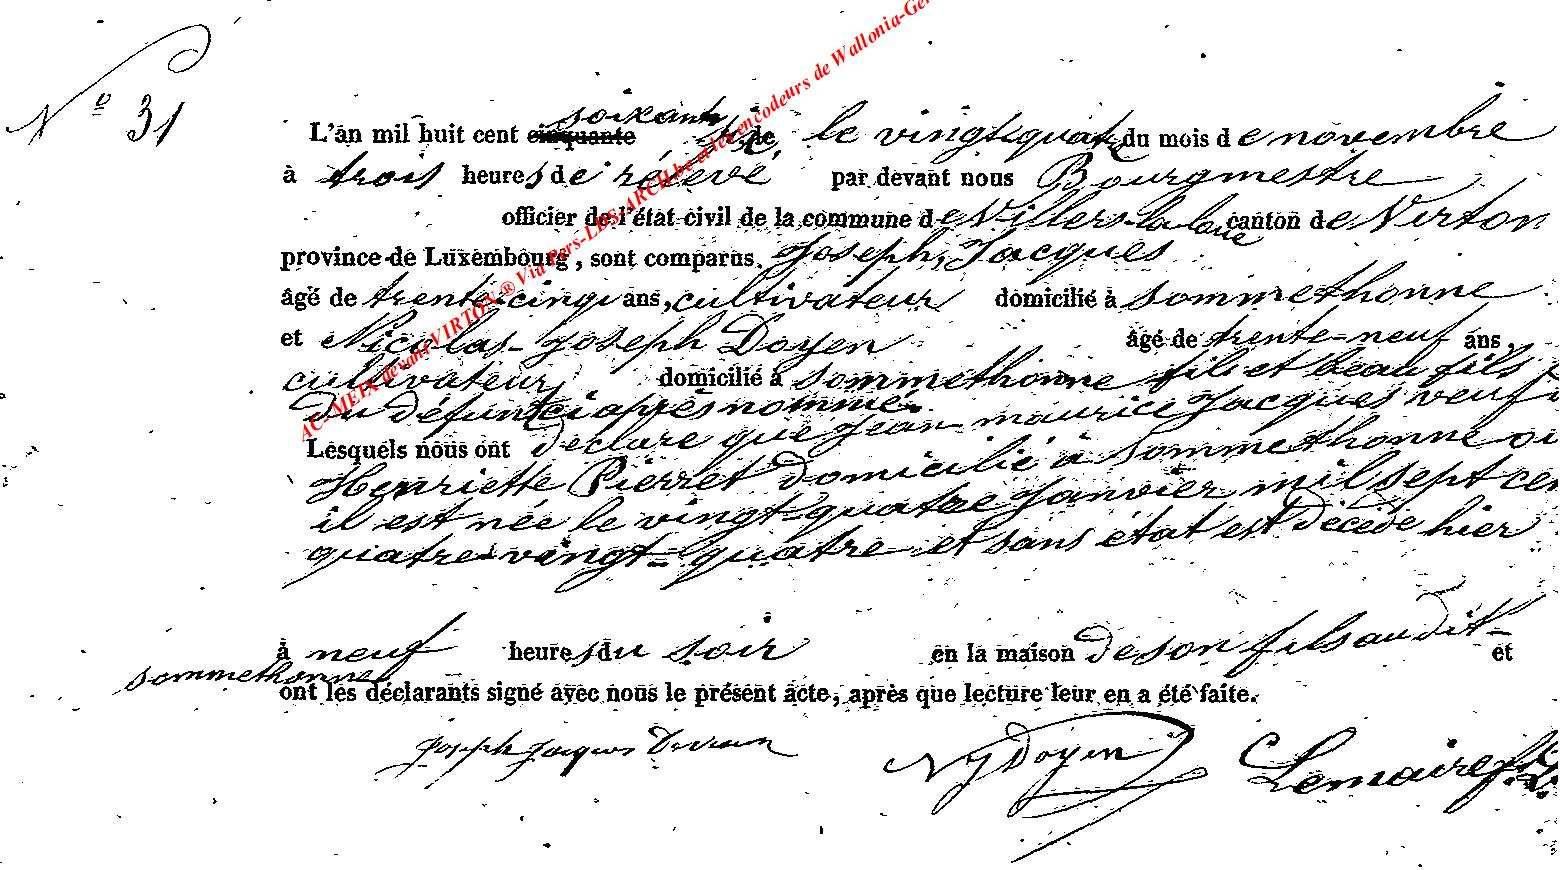 N° 31
L'an mil huit cent cinquante soixante six, le vingt-quatre du mois de novembre
à trois heures de rélevé par devant nous Bourgmestre
officier de l'état civil de la commune de Villers-la-loue canton de Virton
province de Luxembourg, sont comparus Joseph, Jacques
âgé de trente-cinq ans, cultivateur domicilié à Sommethonne
et Nicolas-Joseph Doyen âgé de trente-neuf ans,
cultivateur domicilié à Sommethonne fils et beau fils
du défunt ci après nommé.
Lesquels nous ont déclaré que Jean-maurice Jacques veuf
Henriette Pierret domicilié à Sommethonne ou
il est née le vingt-quatre Janvier mil sept cen
quatre-vingt-quatre et sans état est décédé hier
à neuf heures du soir en la maison de son fils audit- et
sommethonne
ont les déclarants signé avec nous le présent acte, après que lecture leur en a été faite.
Joseph Jacques NJ Doyen Lemaire
AC-MEIX devant VIRTON ® Via Pers-LDS-ARCH.be et les encodeurs de Wallonia-Gen